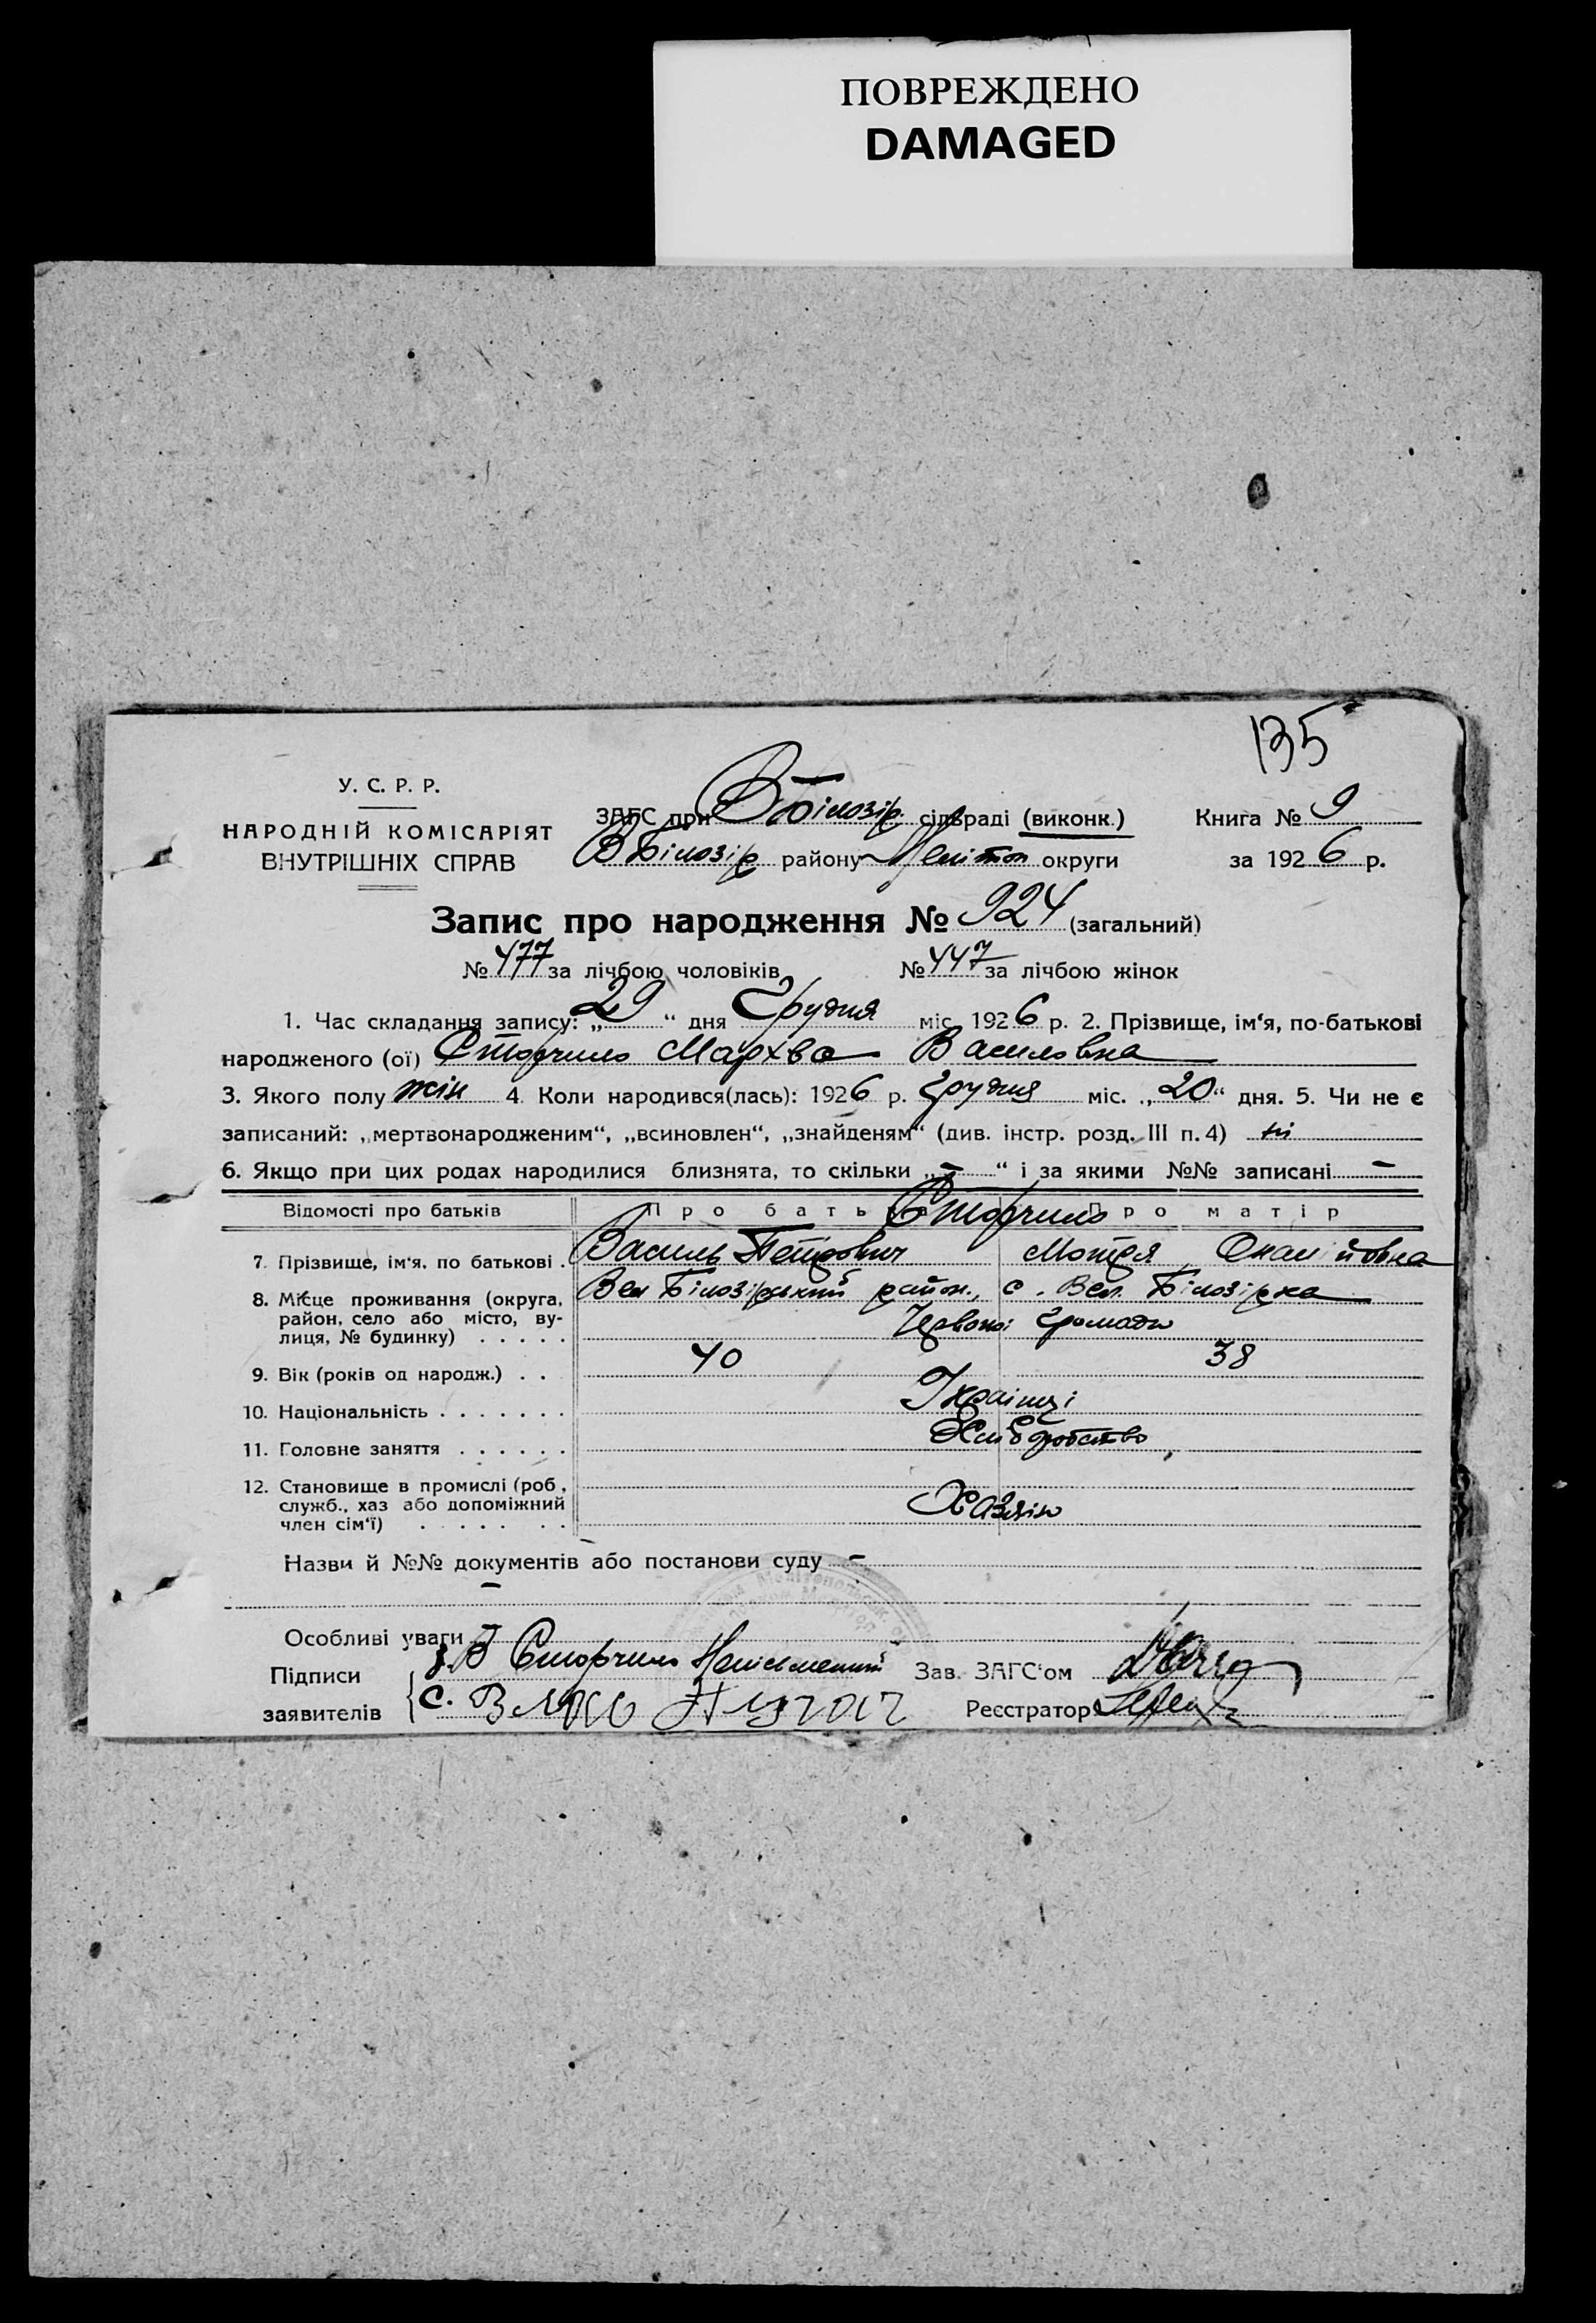 ПОВРЕЖДЕНО
DAMAGED
135
У. С. Р. Р.
НАРОДНІЙ КОМІСАРІЯТ
ВНУТРІШНІХ СПРАВ
ЗАГС при В Білозір. сільраді (виконк.)
В Білозір району Мелітоп округи
Книга № 9
за 1926 р.
Запис про народження № 924 (загальний)
№ 477 за лічбою чоловіків № 447 за лічбою жінок
1. Час складання запису: „29“ дня Грудня міс. 1926 р. 2. Прізвище, ім‘я, по-батькові
народженого (ої) Сторчило Мархва Василовна
3. Якого полу жін 4. Коли народився(лась): 1926 р. Грудня міс. „20“ дня. 5. Чи не є
записаний: „мертвонародженим“, „всиновлен“, „знайденям“ (див. інстр. розд. III п. 4) ні
6. Якщо при цих родах народилися близнята, то скільки „–“ і за якими №№ записані –
Відомості про батьків Про батька Про матір
Сторчило
7. Прізвище, ім‘я, по батькові . Василь Петрович Мотря Онан йовна
8. Місце проживання (округа, Вел Білозірський район., с. Вел. Білозірка
район, село або місто, ву-
лиця, № будинку) . . . . . Червоної Громади
9. Вік (років од народж.) . . 40 38
10. Національність . . . . . . . Українці
11. Головне заняття . . . . . . Хліборобство
12. Становище в промислі (роб.,
служб., хаз або допоміжний
член сім‘ї) . . . . . . . Хазяїн
Назви й №№ документів або постанови суду –
–
Особливі уваги
Підписи
заявителів
Сторчило Неписьменний
С.
Зав. ЗАГС‘ом
Реєстратор